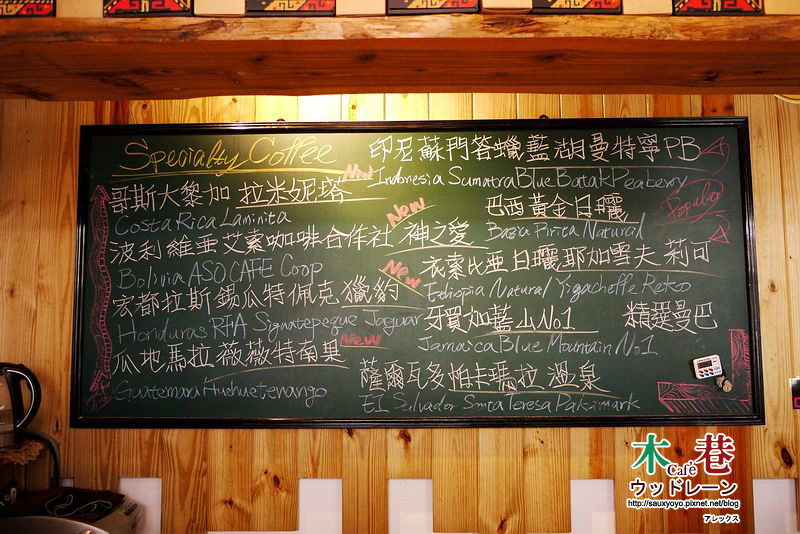 Specialty Coffee
哥斯大黎加 拉米妮塔 New
Costa Rica Laminita
波利維亞艾索咖啡合作社 神之愛 New
Bolivia ASOCAFE Coop
宏都拉斯錫瓜特佩克獵豹 New
Honduras RFA Siguatepeque Jaguar
瓜地馬拉 薇薇特南果 New
Guatemara Huehuetenango
印尼蘇門答蠟藍湖曼特寧PB
Indonesia Sumatra Blue Batak Peaberry
巴西黃金日曬
Popular
Natural
衣索比亞日曬耶加雪夫 莉可
Ethiopia Natural Yigacheffe Reko
牙買加藍山No1 精選曼巴
Jamaica Blue Mountain No1
薩爾瓦多帕卡瑪拉 溫泉
El Salvador Santa Teresa Pakamark
木巷
Cafe
ウッドレーン
http://sauxyoyo.pixnet.net/blog
アレックス